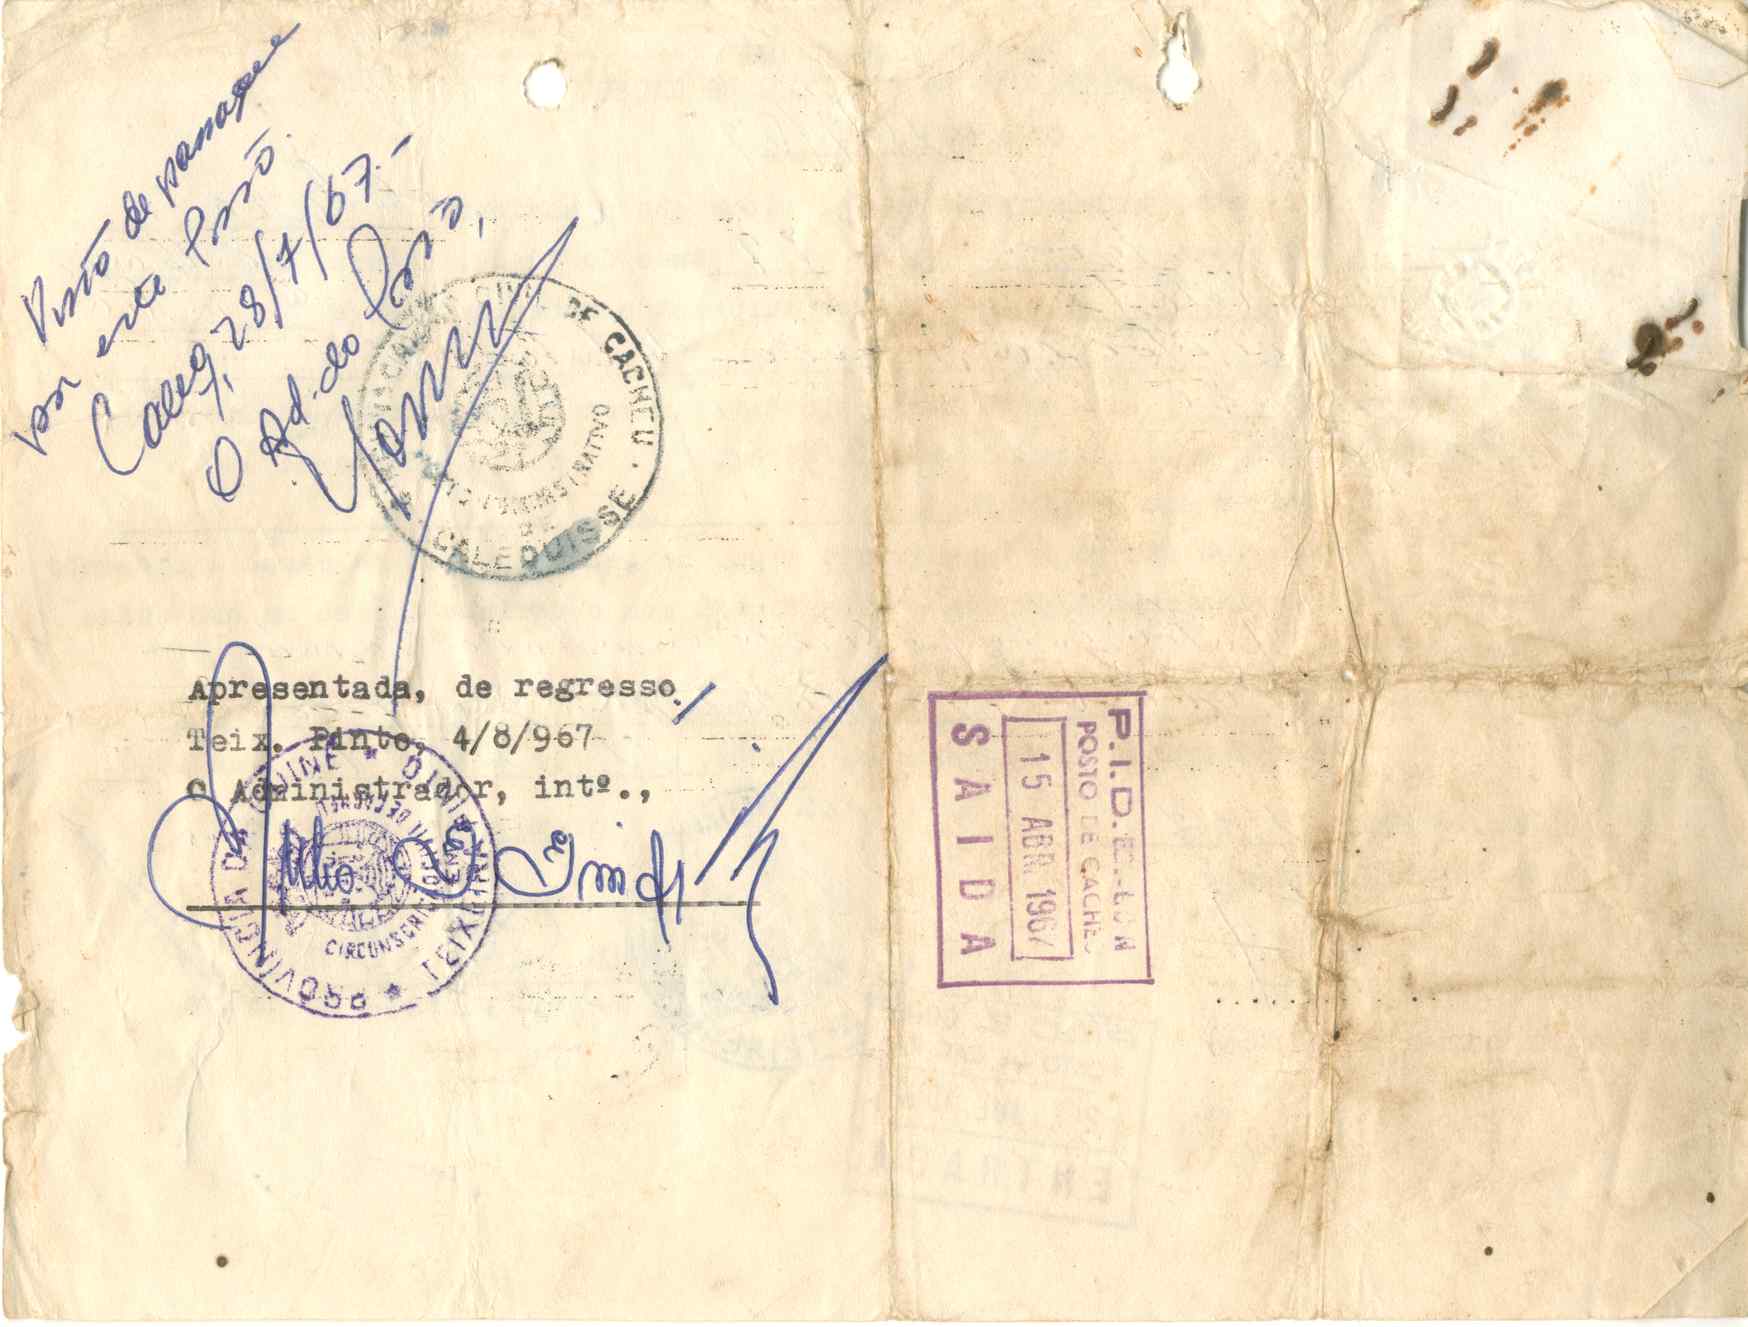 Visto de passagem
por este Posto.
Caleq, 28/7/67.-
O Ad. do Posto,
DE CACHEU
CALEQUISSE
Apresentada, de regresso.
Teix. Pinto, 4/8/967
O Administrador, intº.,
PROVÍNCIA DA GUINÉ
CIRCUNSCRIÇÃO
TEIXEIRA PINTO
P.I.D.E.
POSTO DE CACHEU
15 ABR. 1967
SAIDA
ENTRADA